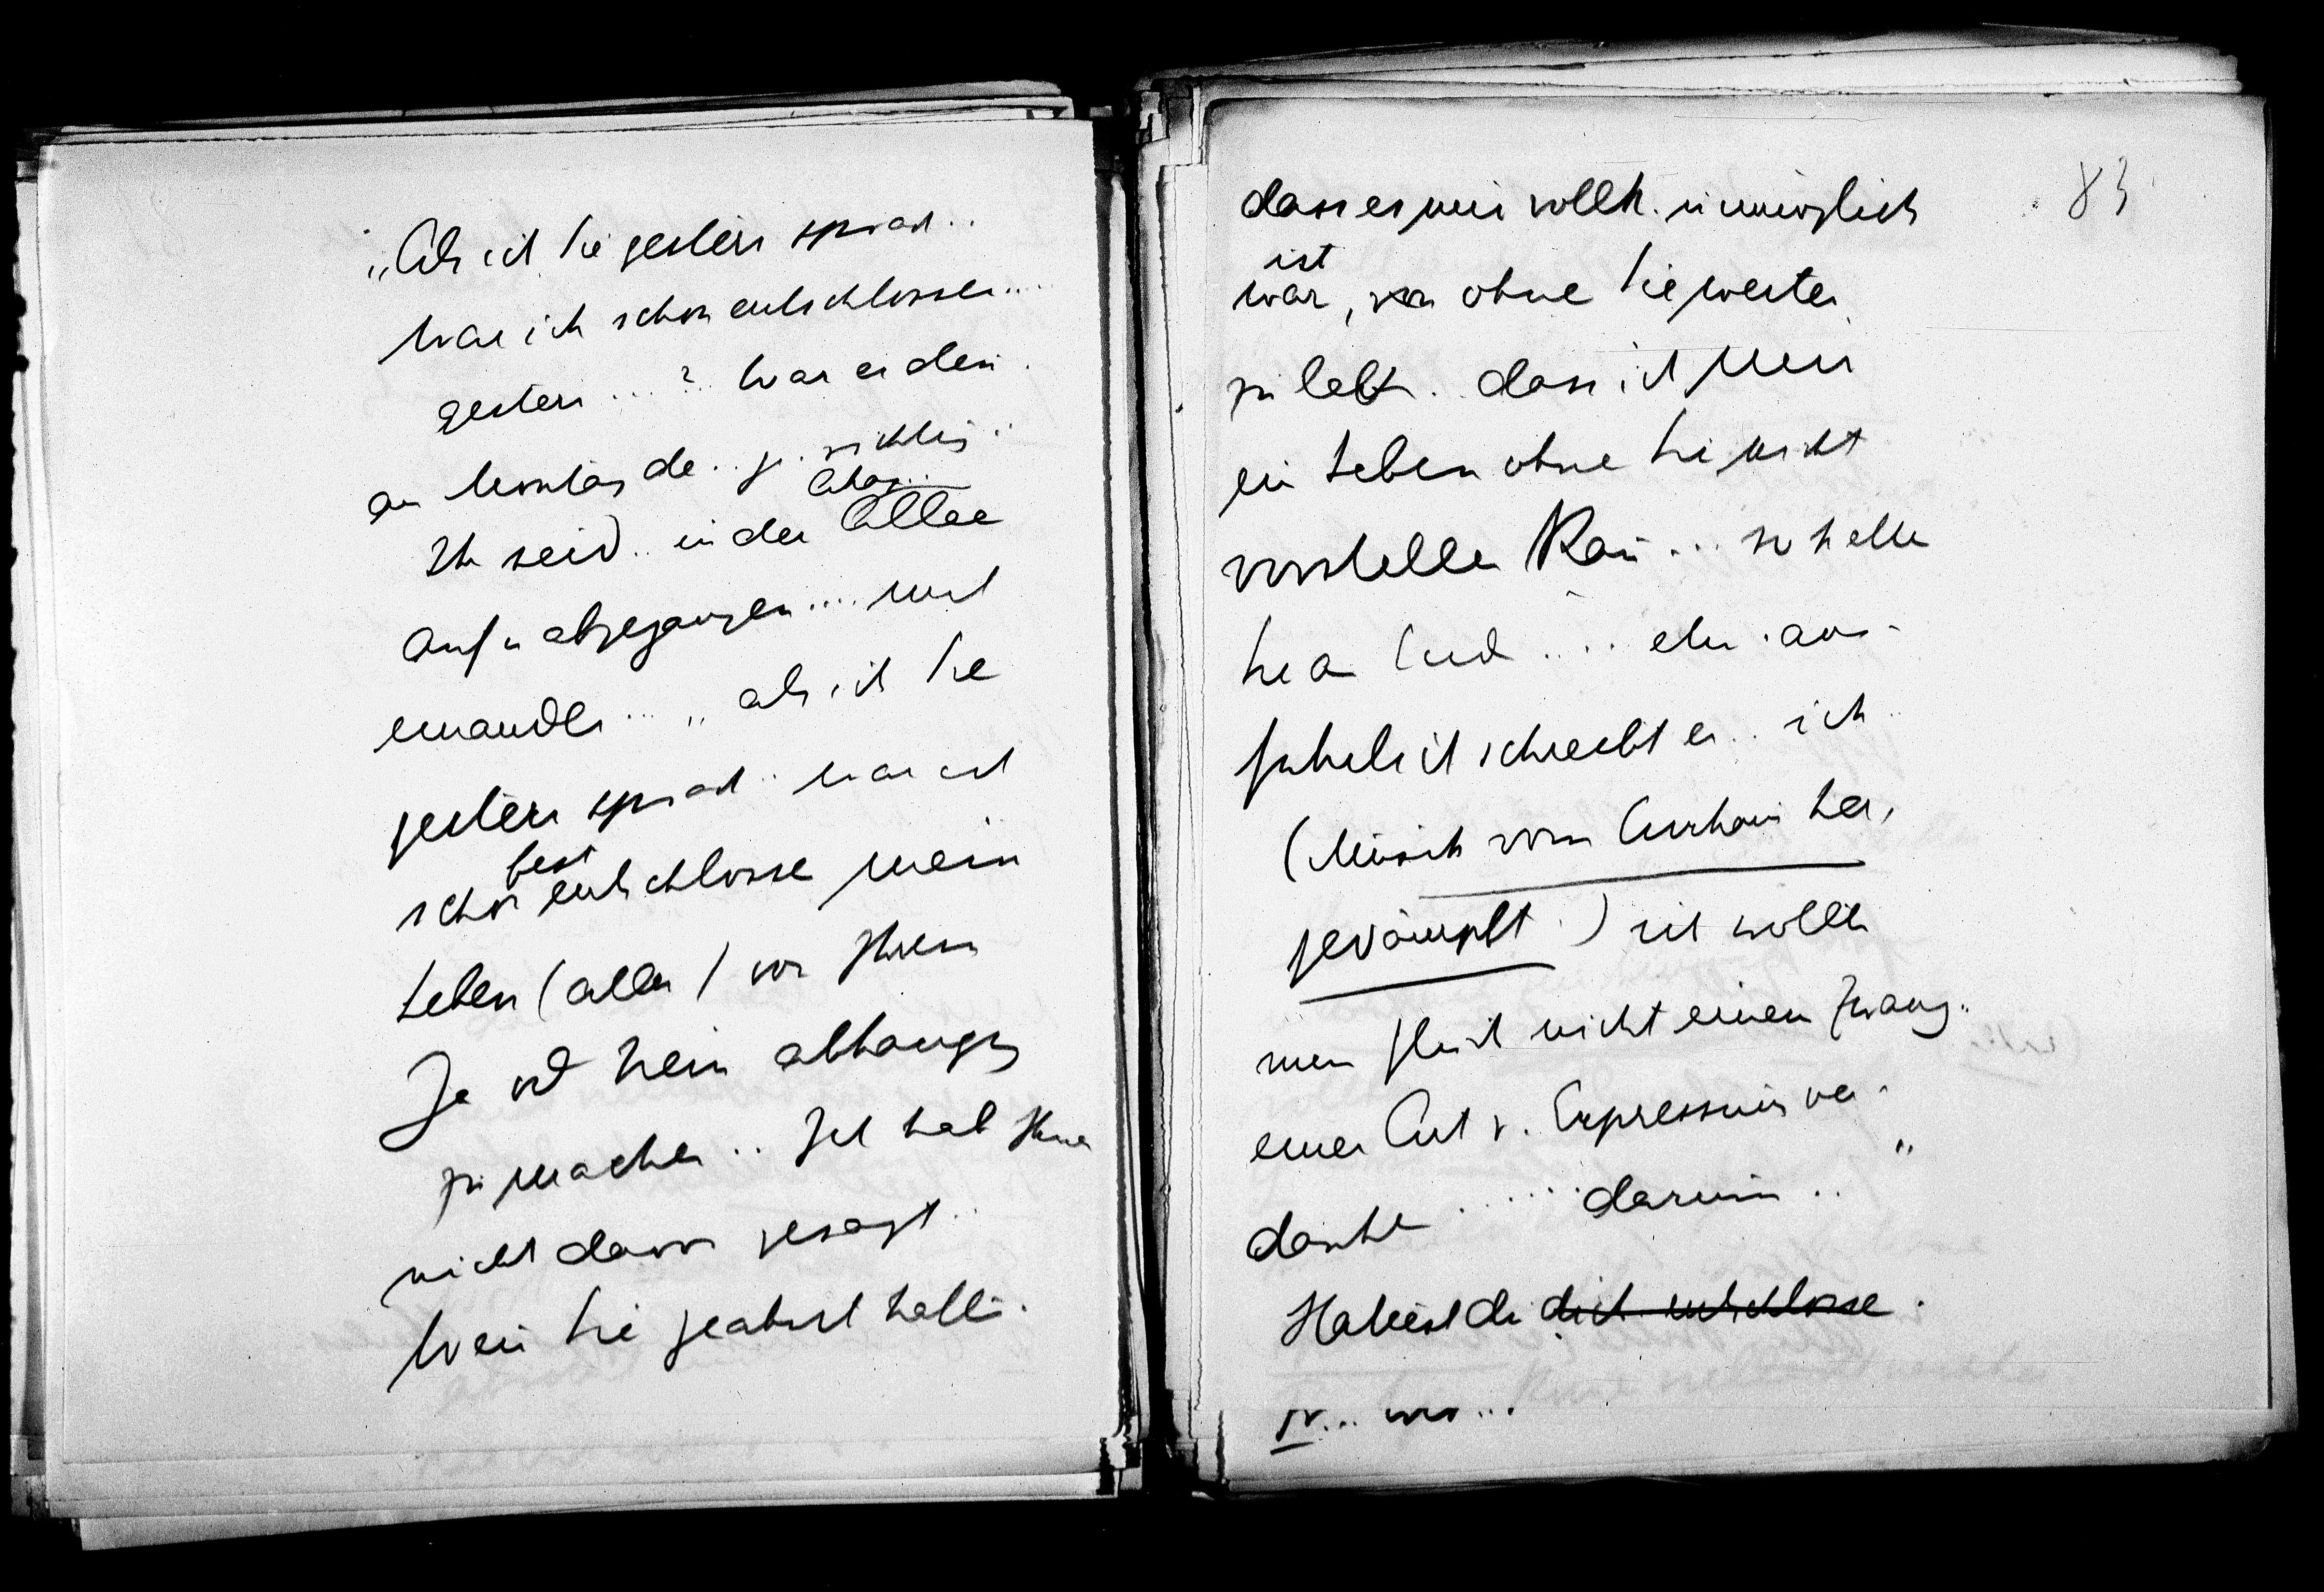 „Als ich Sie gestern sprach..
war ich schon entschlossen....
gestern...? War er den
am Montag da.. ja. richtig..
Abag..
Ihr seid.. in der Allee
auf u abgegangen.... mit
einander... „als ich Sie
gestern sprach.. war ich
best
schon entschlosse mein
Leben (alles) von Ihrem
Ja od Nein abhängig
zu machen.. Ich hab Ihne
nicht davon gesagt..
Wenn Sie geahnt hätte.
83
dass es mir vollk. unmöglich
ist
war, ohne Sie weiter
zu lebn. dass ich mir
ein Leben ohne Sie nicht
vorstelle Kan... so helle
Sie a .... eher aus-
schreibt er.. ich
(Musik vom Curhaus her,
gedämpft.) ich wollte
nicht einen Zwang..
einer Art v. Erpressung ver-
danke..... darum.. "
Habest du dich entschlosse.
IV... wer...